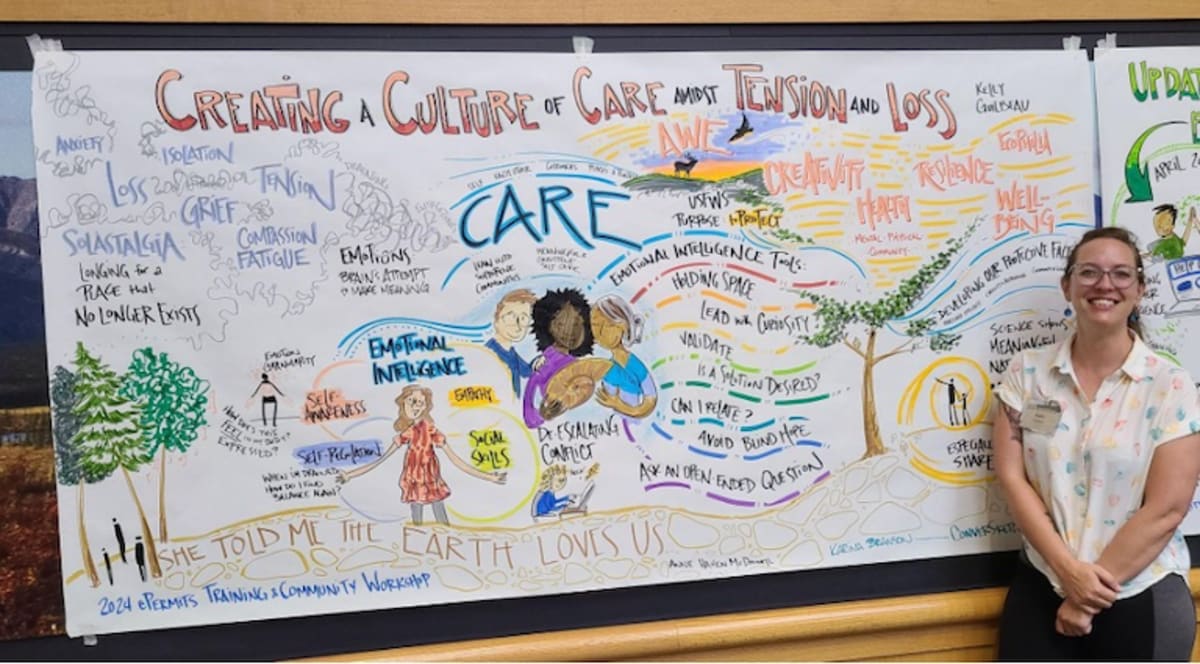 CREATING A CULTURE OF CARE AMIDST TENSION AND LOSS
KELLY
UPDAT
APRIL 2
ANXIETY
ISOLATION
LOSS
TENSION
GRIEF
SOLASTALGIA
COMPASSION
FATIGUE
LONGING for a
PLACE that
NO LONGER EXISTS
EMOTIONS
BRAIN'S ATTEMPT
to MAKE MEANING
CARE
AWE
USFWS
PURPOSE to PROTECT
CREATIVITY
HEALTH
MENTAL PHYSICAL
COMMUNITY
RESILIENCE
WELL-
BEING
EMOTIONAL INTELLIGENCE TOOLS:
HOLDING SPACE
LEAD with CURIOSITY
VALIDATE
IS A SOLUTION DESIRED?
CAN I RELATE?
AVOID BLIND HOPE
ASK AN OPEN-ENDED QUESTION
DEVELOPING OUR PROTECTIVE
SCIENCE SHOWS
MEANINGFUL
ESPECIAL
SHARE
EMOTIONAL
INTELLIGENCE
EMOTION
GRANULARITY
SELF-
AWARENESS
EMPATHY
SELF-REGULATION
SOCIAL
SKILLS
HOW DOES THIS
FEEL in my BODY?
EXPRESSED?
HOW DO I FIND
BALANCE AGAIN?
DE-ESCALATING
CONFLICT
SHE TOLD ME THE EARTH LOVES US
KARINA BRANSON
2024 ePERMITS TRAINING & COMMUNITY WORKSHOP
HELP